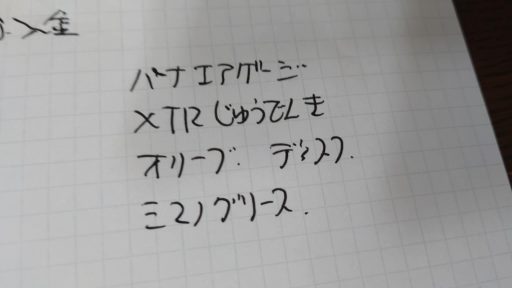 入金
バーナ エアゲージ
XTR じゅうでんき
オリーブ. ディスク.
ミスノグリース.